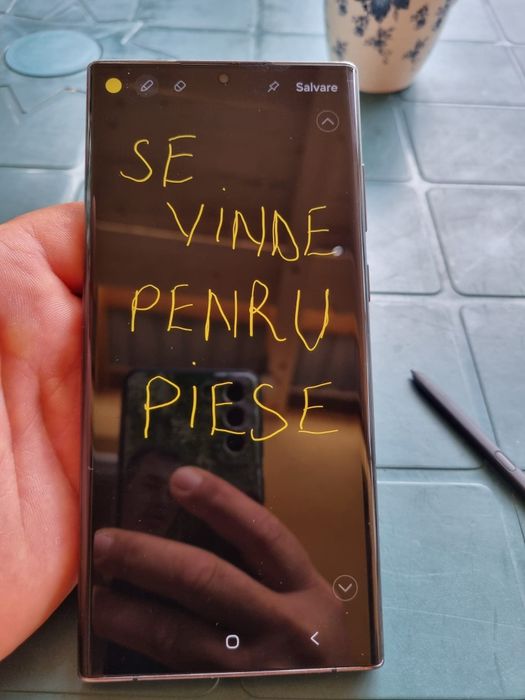 Salvare
SE
VINDE
PENRU
PIESE